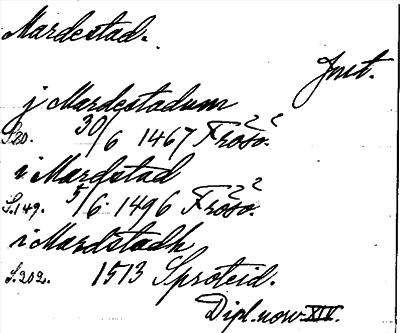 Mardestad.
Jmt.
j Mardestadum
S.80. 30/6 1467 Frösö.
i Mardstad
S.149. 5/6 1496 Frösö.
i Mardstadh
S.202. 1513 Sproteid.
Dipl. norv. XIV.